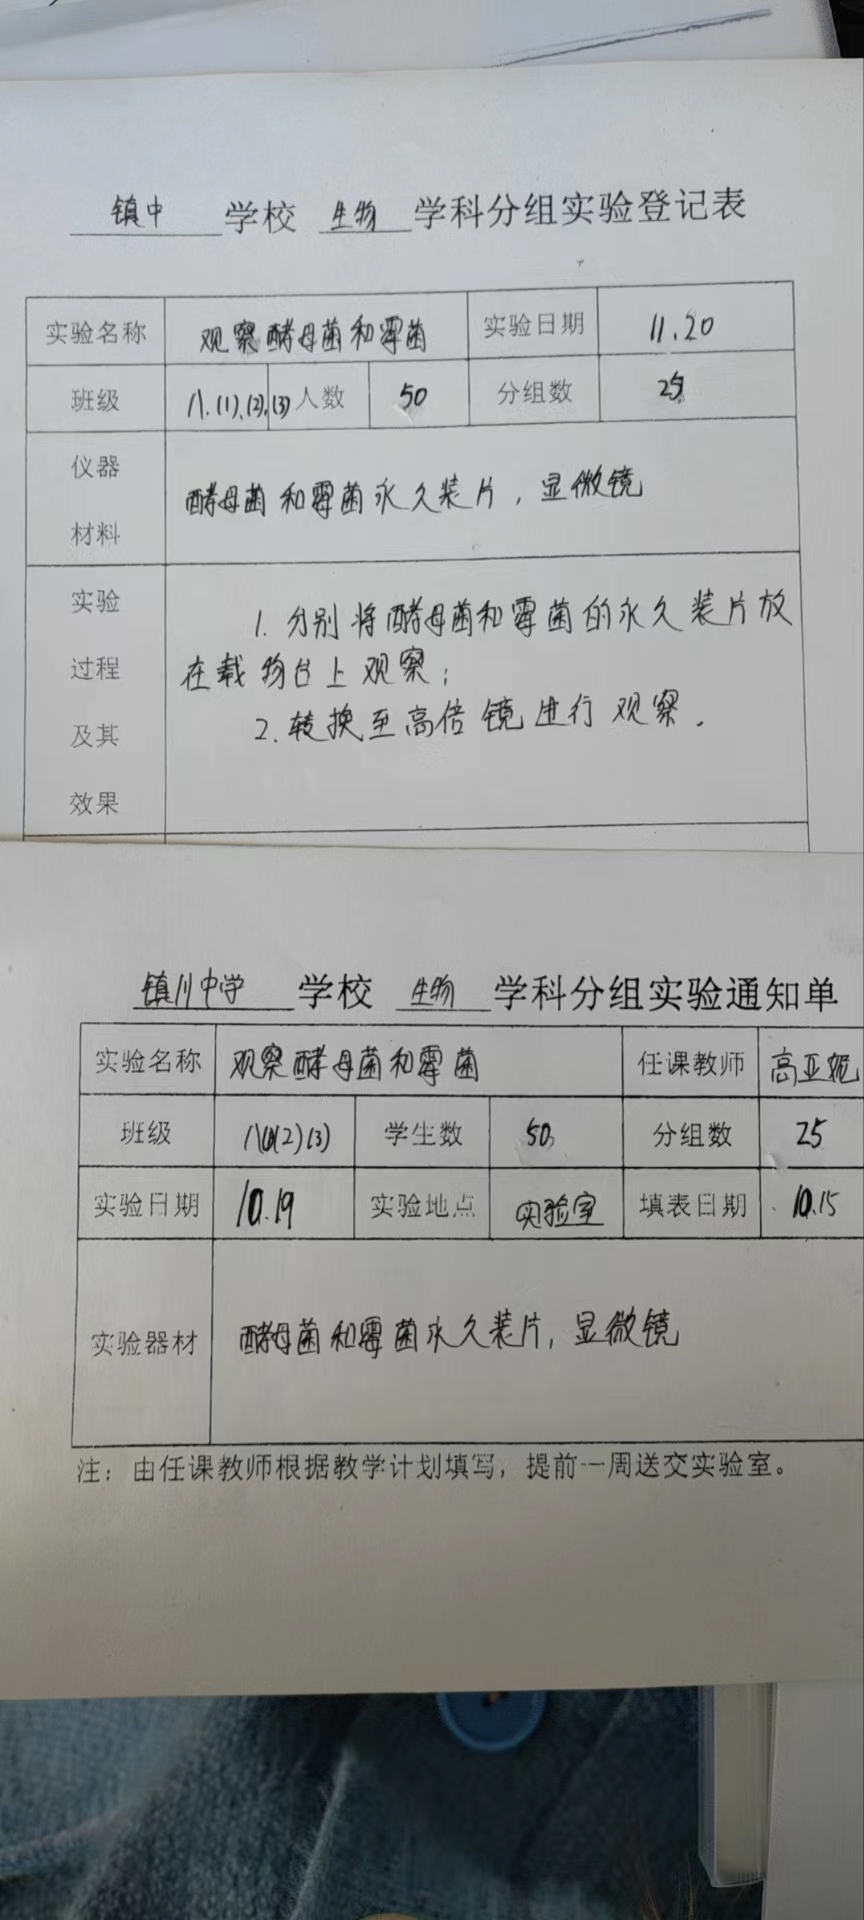 镇中 学校 生物 学科分组实验登记表
实验名称 观察酵母菌和霉菌 实验日期 11.20
班级 八.(1).(2).(3) 人数 50 分组数 25
仪器
材料
酵母菌和霉菌永久装片，显微镜
实验
过程
及其
效果
1. 分别将酵母菌和霉菌的永久装片放
在载物台上观察；
2. 转换至高倍镜进行观察.
镇川中学 学校 生物 学科分组实验通知单
实验名称 观察酵母菌和霉菌 任课教师 高亚妮
班级 八(1)(2)(3) 学生数 50 分组数 25
实验日期 10.19 实验地点 实验室 填表日期 10.15
实验器材 酵母菌和霉菌永久装片，显微镜
注：由任课教师根据教学计划填写，提前一周送交实验室。